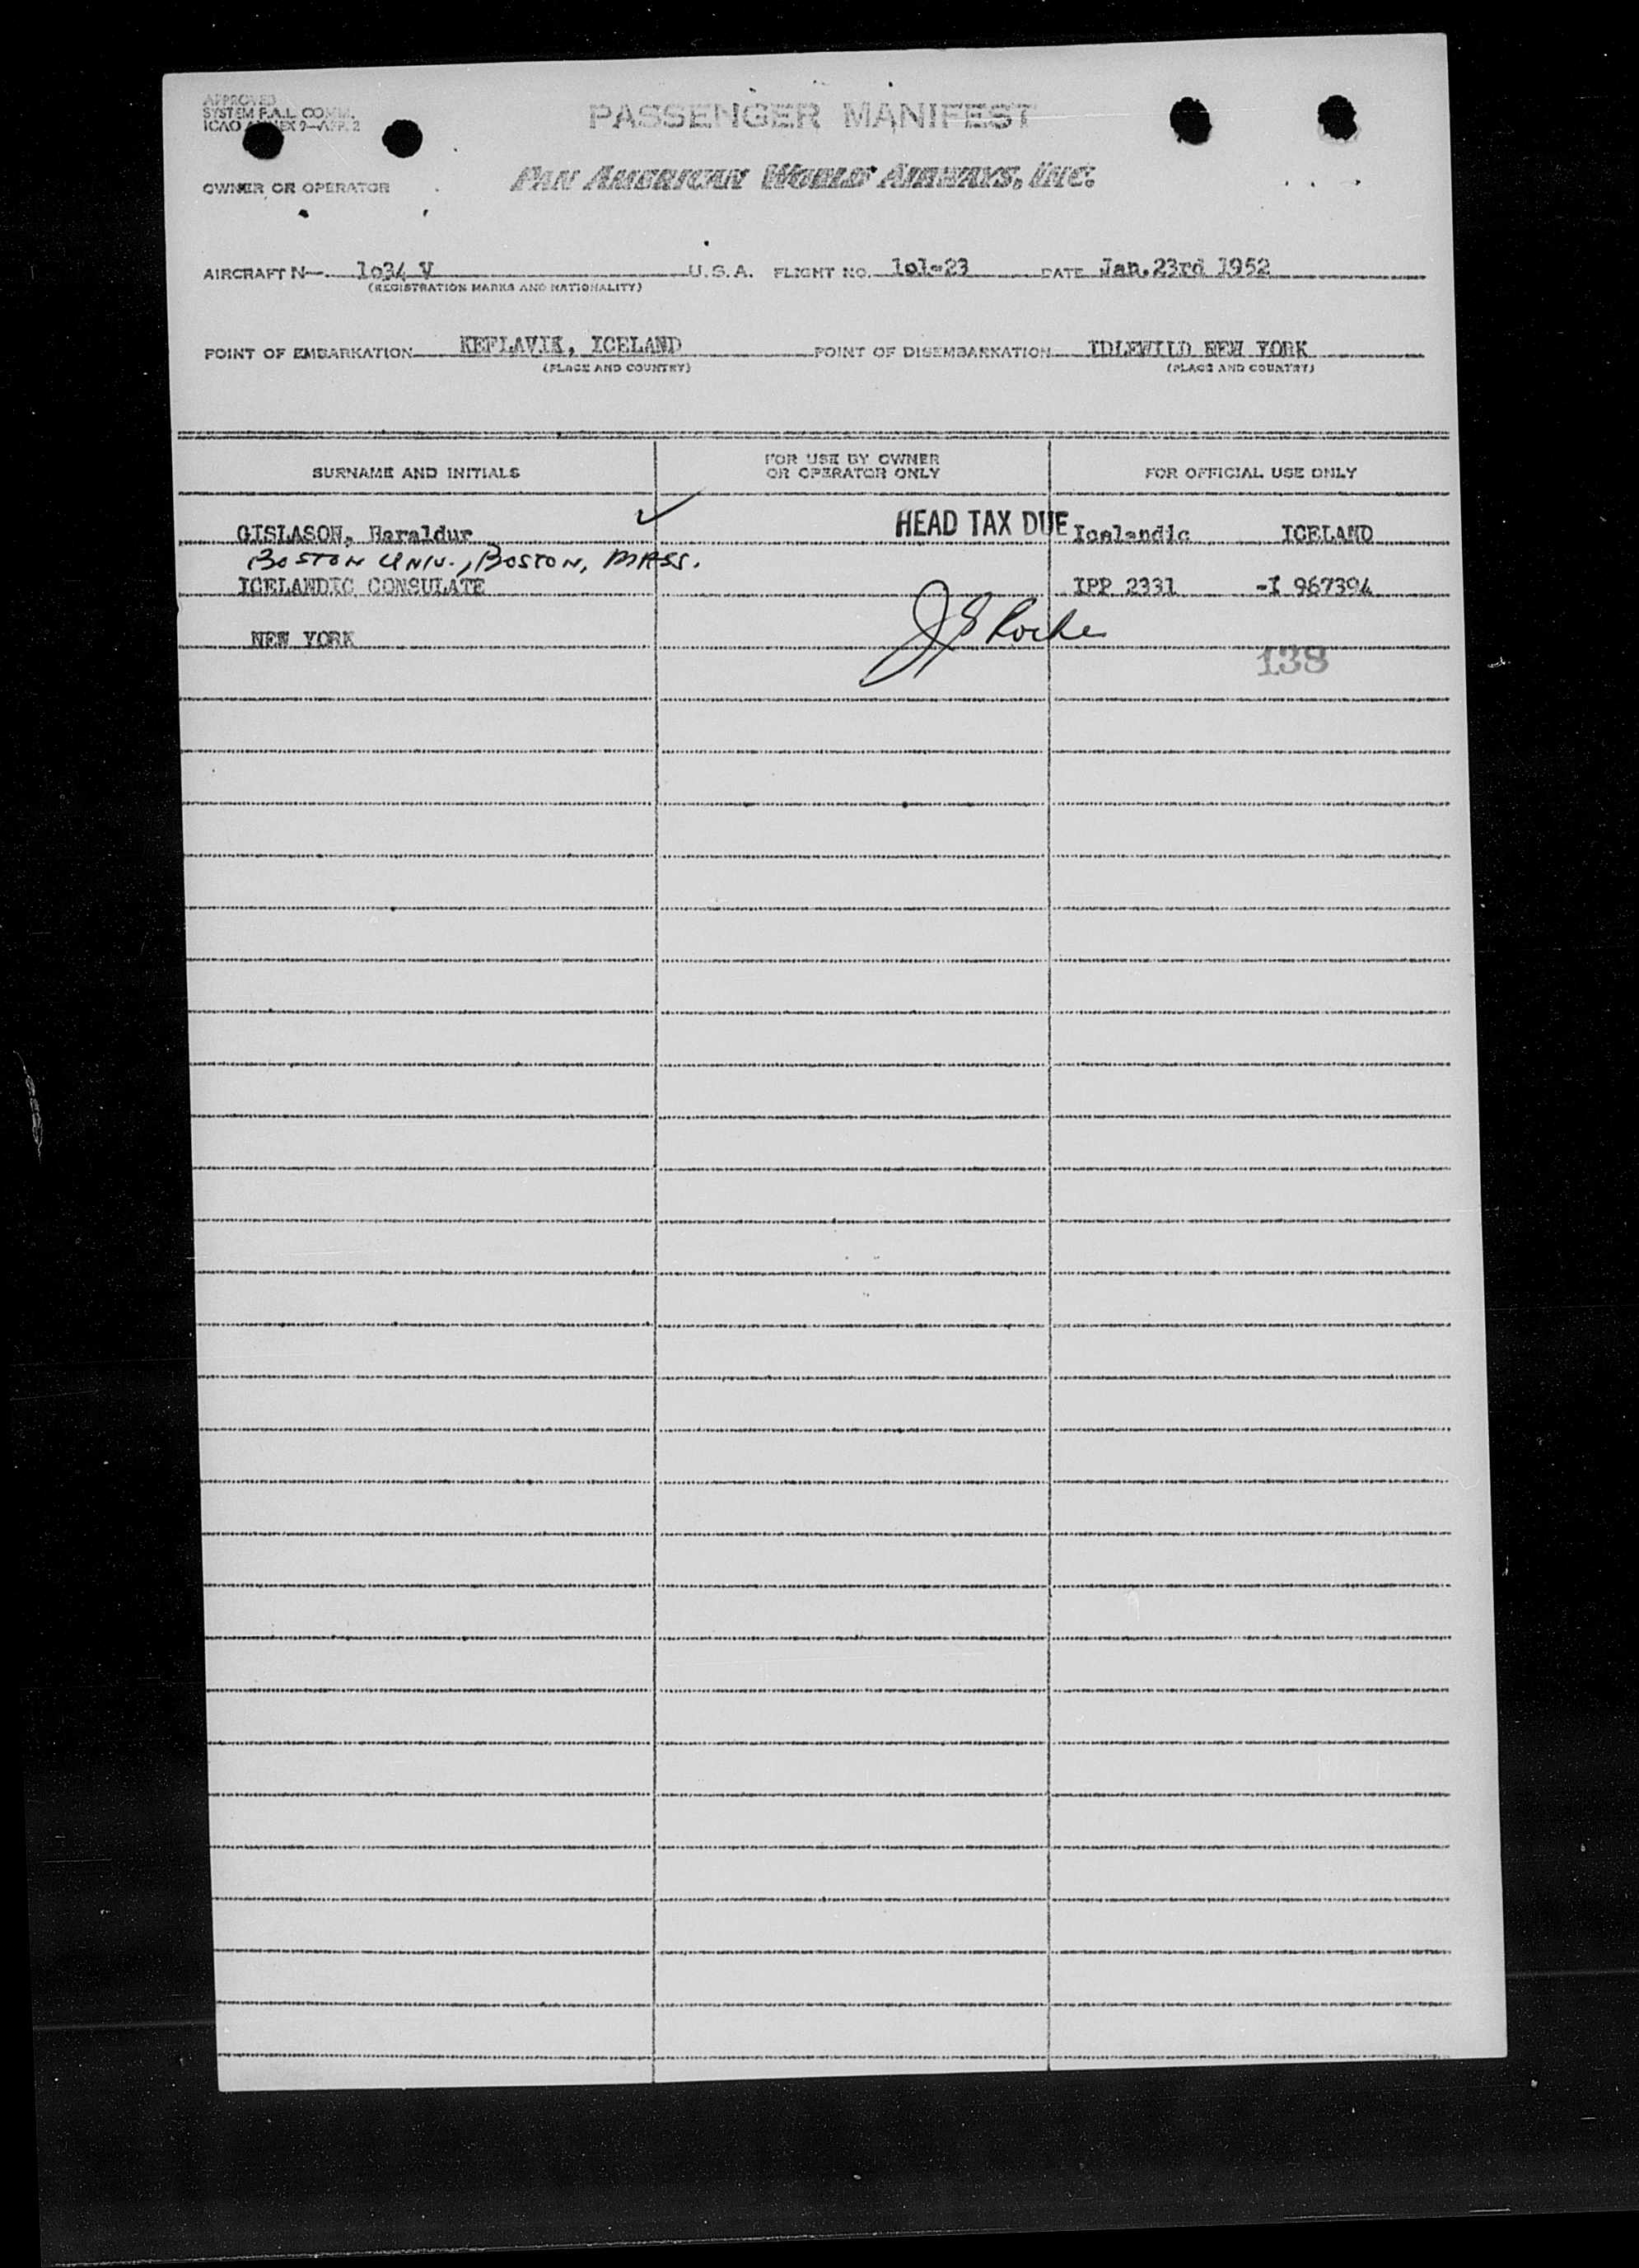 APPROVED
SYSTEM F.A.L. COMM.
ICAO ANNEX 9—APP. 2
PASSENGER MANIFEST
OWNER OR OPERATOR
PAN AMERICAN WORLD AIRWAYS, INC.
AIRCRAFT N— 1o34 V U.S.A. FLIGHT NO. 1o1-23 DATE Jan.23rd 1952
(REGISTRATION MARKS AND NATIONALITY)
POINT OF EMBARKATION KEFLAVIK, ICELAND POINT OF DISEMBARKATION IDLEWILD NEW YORK
(PLACE AND COUNTRY) (PLACE AND COUNTRY)
SURNAME AND INITIALS FOR USE BY OWNER OR OPERATOR ONLY FOR OFFICIAL USE ONLY
GISLASON, Haraldur HEAD TAX DUE Icelandic ICELAND
BOSTON UNIV., BOSTON, MASS.
ICELANDIC CONSULATE IPP 2331 -I 967394
NEW YORK
138